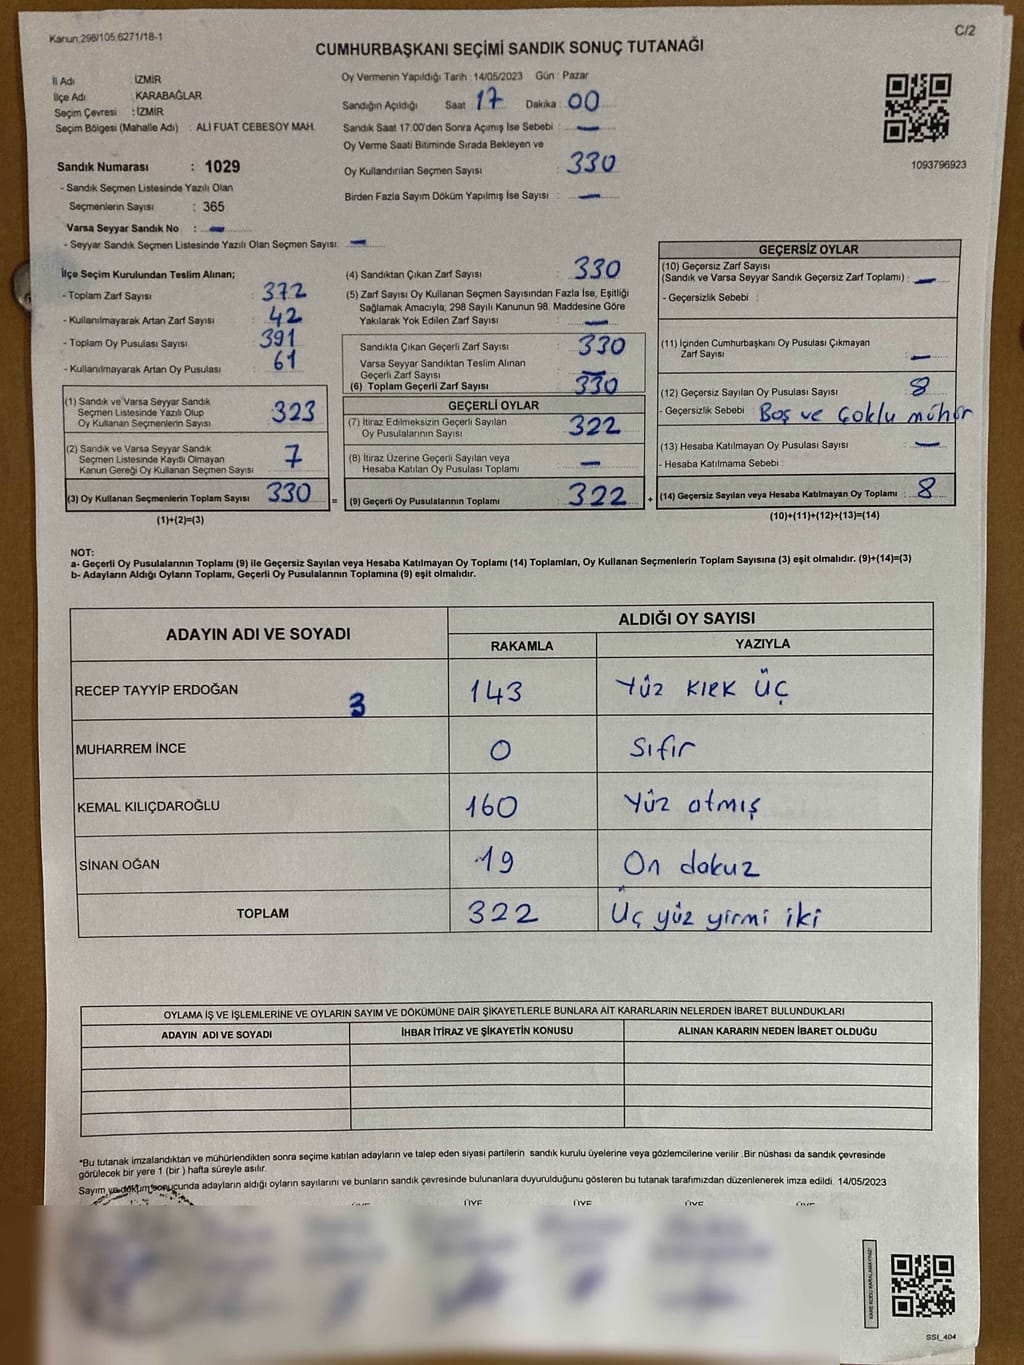 Kanun:298/105.6271/18-1
C/2
CUMHURBAŞKANI SEÇİMİ SANDIK SONUÇ TUTANAĞI
İl Adı : İZMİR
İlçe Adı : KARABAĞLAR
Seçim Çevresi : İZMİR
Seçim Bölgesi (Mahalle Adı) : ALİ FUAT CEBESOY MAH.
Sandık Numarası : 1029
- Sandık Seçmen Listesinde Yazılı Olan
Seçmenlerin Sayısı : 365
Varsa Seyyar Sandık No : —
- Seyyar Sandık Seçmen Listesinde Yazılı Olan Seçmen Sayısı: —
Oy Vermenin Yapıldığı Tarih : 14/05/2023 Gün : Pazar
Sandığın Açıldığı Saat 17 Dakika : 00
Sandık Saat 17:00'den Sonra Açımış İse Sebebi : —
Oy Verme Saati Bitiminde Sırada Bekleyen ve
Oy Kullandırılan Seçmen Sayısı : 330
Birden Fazla Sayım Döküm Yapılmış İse Sayısı : —
1093796923
İlçe Seçim Kurulundan Teslim Alınan;
- Toplam Zarf Sayısı : 372
- Kullanılmayarak Artan Zarf Sayısı : 42
- Toplam Oy Pusulası Sayısı : 391
- Kullanılmayarak Artan Oy Pusulası : 61
(1) Sandık ve Varsa Seyyar Sandık
Seçmen Listesinde Yazılı Olup
Oy Kullanan Seçmenlerin Sayısı : 323
(2) Sandık ve Varsa Seyyar Sandık
Seçmen Listesinde Kayıtlı Olmayan
Kanun Gereği Oy Kullanan Seçmen Sayısı : 7
(3) Oy Kullanan Seçmenlerin Toplam Sayısı : 330
(1)+(2)=(3)
(4) Sandıktan Çıkan Zarf Sayısı : 330
(5) Zarf Sayısı Oy Kullanan Seçmen Sayısından Fazla İse, Eşitliği
Sağlamak Amacıyla; 298 Sayılı Kanunun 98. Maddesine Göre
Yakılarak Yok Edilen Zarf Sayısı : —
Sandıkta Çıkan Geçerli Zarf Sayısı : 330
Varsa Seyyar Sandıktan Teslim Alınan
Geçerli Zarf Sayısı : —
(6) Toplam Geçerli Zarf Sayısı : 330
GEÇERLİ OYLAR
(7) İtiraz Edilmeksizin Geçerli Sayılan
Oy Pusulalarının Sayısı : 322
(8) İtiraz Üzerine Geçerli Sayılan veya
Hesaba Katılan Oy Pusulası Toplamı : —
= (9) Geçerli Oy Pusulalarının Toplamı : 322
GEÇERSİZ OYLAR
(10) Geçersiz Zarf Sayısı
(Sandık ve Varsa Seyyar Sandık Geçersiz Zarf Toplamı) : —
- Geçersizlik Sebebi :
(11) İçinden Cumhurbaşkanı Oy Pusulası Çıkmayan
Zarf Sayısı : —
(12) Geçersiz Sayılan Oy Pusulası Sayısı : 8
- Geçersizlik Sebebi : Boş ve çoklu mühür
(13) Hesaba Katılmayan Oy Pusulası Sayısı : —
- Hesaba Katılmama Sebebi :
+ (14) Geçersiz Sayılan veya Hesaba Katılmayan Oy Toplamı : 8
(10)+(11)+(12)+(13)=(14)
NOT:
a- Geçerli Oy Pusulalarının Toplamı (9) ile Geçersiz Sayılan veya Hesaba Katılmayan Oy Toplamı (14) Toplamları, Oy Kullanan Seçmenlerin Toplam Sayısına (3) eşit olmalıdır. (9)+(14)=(3)
b- Adayların Aldığı Oyların Toplamı, Geçerli Oy Pusulalarının Toplamına (9) eşit olmalıdır.
ADAYIN ADI VE SOYADI
ALDIĞI OY SAYISI
RAKAMLA YAZIYLA
RECEP TAYYİP ERDOĞAN 3 143 Yüz KIRK ÜÇ
MUHARREM İNCE 0 Sıfır
KEMAL KILIÇDAROĞLU 160 Yüz atmış
SİNAN OĞAN 19 On dokuz
TOPLAM 322 Üç yüz yirmi iki
OYLAMA İŞ VE İŞLEMLERİNE VE OYLARIN SAYIM VE DÖKÜMÜNE DAİR ŞİKAYETLERLE BUNLARA AİT KARARLARIN NELERDEN İBARET BULUNDUKLARI
ADAYIN ADI VE SOYADI İHBAR İTİRAZ VE ŞİKAYETİN KONUSU ALINAN KARARIN NEDEN İBARET OLDUĞU
*Bu tutanak imzalandıktan ve mühürlendikten sonra seçime katılan adayların ve talep eden siyasi partilerin sandık kurulu üyelerine veya gözlemcilerine verilir .Bir nüshası da sandık çevresinde
görülecek bir yere 1 (bir ) hafta süreyle asılır.
Sayım ve döküm sonucunda adayların aldığı oyların sayılarını ve bunların sandık çevresinde bulunanlara duyurulduğunu gösteren bu tutanak tarafımızdan düzenlenerek imza edildi. 14/05/2023
ÜYE ÜYE ÜYE ÜYE ÜYE
KARE KODU KARALAMAYINIZ!
SSI_404